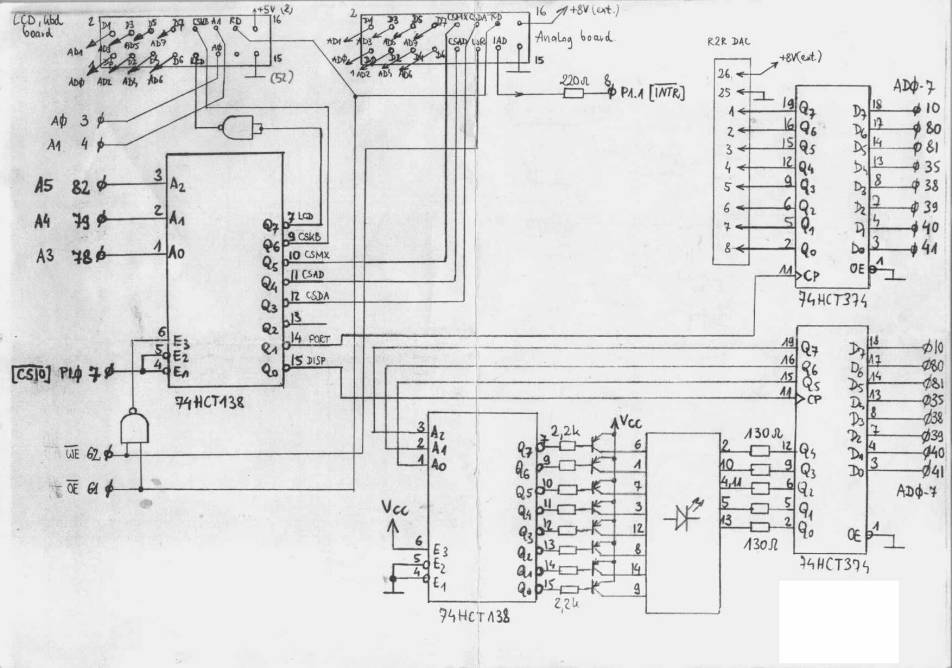 LCD, kbd board
2
D1 D3 D5 D7 CSKB A1 RD
+5V (2)
16
AD1 AD3 AD5 AD7
A0
D0 D2 D4 D6 LCD
AD0 AD2 AD4 AD6
1
15
(52)
2
D1 D3 D5 D7 CSMX CSDA RD
16
+8V (ext.)
AD1 AD3 AD5 AD7
CSAD WR IAD
Analog board
D0 D2 D4 D6
AD0 AD2 AD5 AD4
1
15
220Ω 8 P1.1 [INTR]
R2R DAC
26
+8V (ext)
25
1
2
3
4
5
6
7
8
AD0-7
19 Q7 D7 18 10
16 Q6 D6 17 80
15 Q5 D5 14 81
12 Q4 D4 13 35
9 Q3 D3 8 38
6 Q2 D2 7 39
5 Q1 D1 4 40
2 Q0 D0 3 41
OE 1
11 CP
74HCT374
A0 3
A1 4
A5 82 3 A2
A4 79 2 A1
A3 78 1 A0
Q7 7 LCD
Q6 9 CSKB
Q5 10 CSMX
Q4 11 CSAD
Q3 12 CSDA
Q2 13
Q1 14 PORT
Q0 15 DISP
6 E3
5 E2
4 E1
[CSIO] P1.0 7
74HCT138
WE 62
OE 61
19 Q7 D7 18 10
16 Q6 D6 17 80
15 Q5 D5 14 81
11 CP D4 13 35
D3 8 38
D2 7 39
D1 4 40
D0 3 41
AD0-7
130Ω
12 Q4
9 Q3
6 Q2
5 Q1
2 Q0
130Ω
OE 1
74HCT374
3 A2
2 A1
1 A0
Vcc
6 E3
5 E2
4 E1
Q7 7
Q6 9
Q5 10
Q4 11
Q3 12
Q2 13
Q1 14
Q0 15
2,2k
2,2k
Vcc
6
1
7
3
12
8
14
9
2
10
4,11
5
13
74HCT138